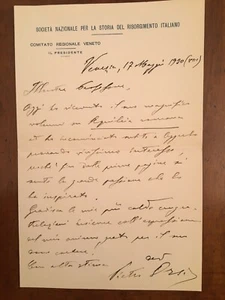 SOCIETÀ NAZIONALE PER LA STORIA DEL RISORGIMENTO ITALIANO
COMITATO REGIONALE VENETO
IL PRESIDENTE
Venezia, 17 Maggio 1930 (VIII)
Illustre Professore,
Oggi ho ricevuto il suo magnifico
volume su Aquileia romana
ed ho incominciato subito a leggerlo
prendendo vivissimo interesse
poiché fin dalle prime pagine si
sente la grande passione che lo
ha inspirato.
Gradisca le mie più calde congra-
tulazioni insieme coll'espressione
del mio animo grato per il suo
dono cortese.
Con alta stima
Pietro Orsi